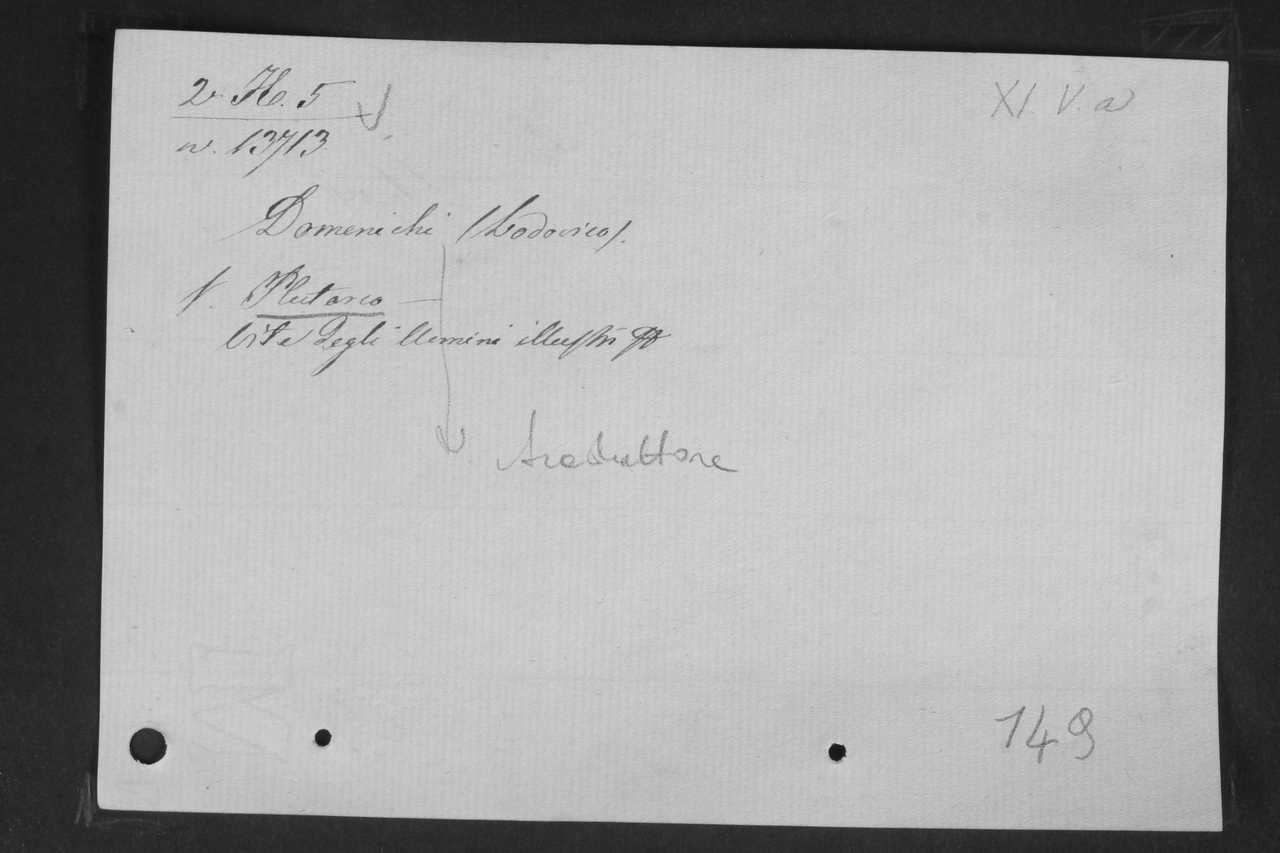 2. H. 5
XI. V. a
n. 13713
Domenichi (Lodovico).
V. Plutarco —
Vite degli Uomini illustri
traduttore
149